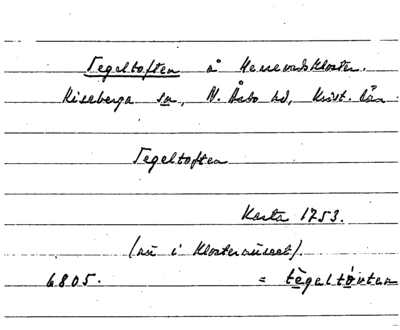 Tegeltoften å Herrevadskloster.
Riseberga sn, N. Åsbo hd, Krist. län.
Tegeltoften
Karta 1753.
(nu i klostermuseet).
6805. = tègeltóvten